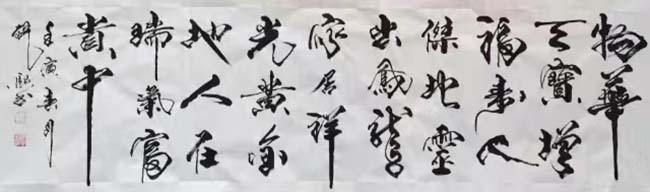 物華
天寶增
福壽人
傑地靈
出鳳龍
家居祥
光黄金
地人在
瑞氣富
貴中
壬寅春月
熙书